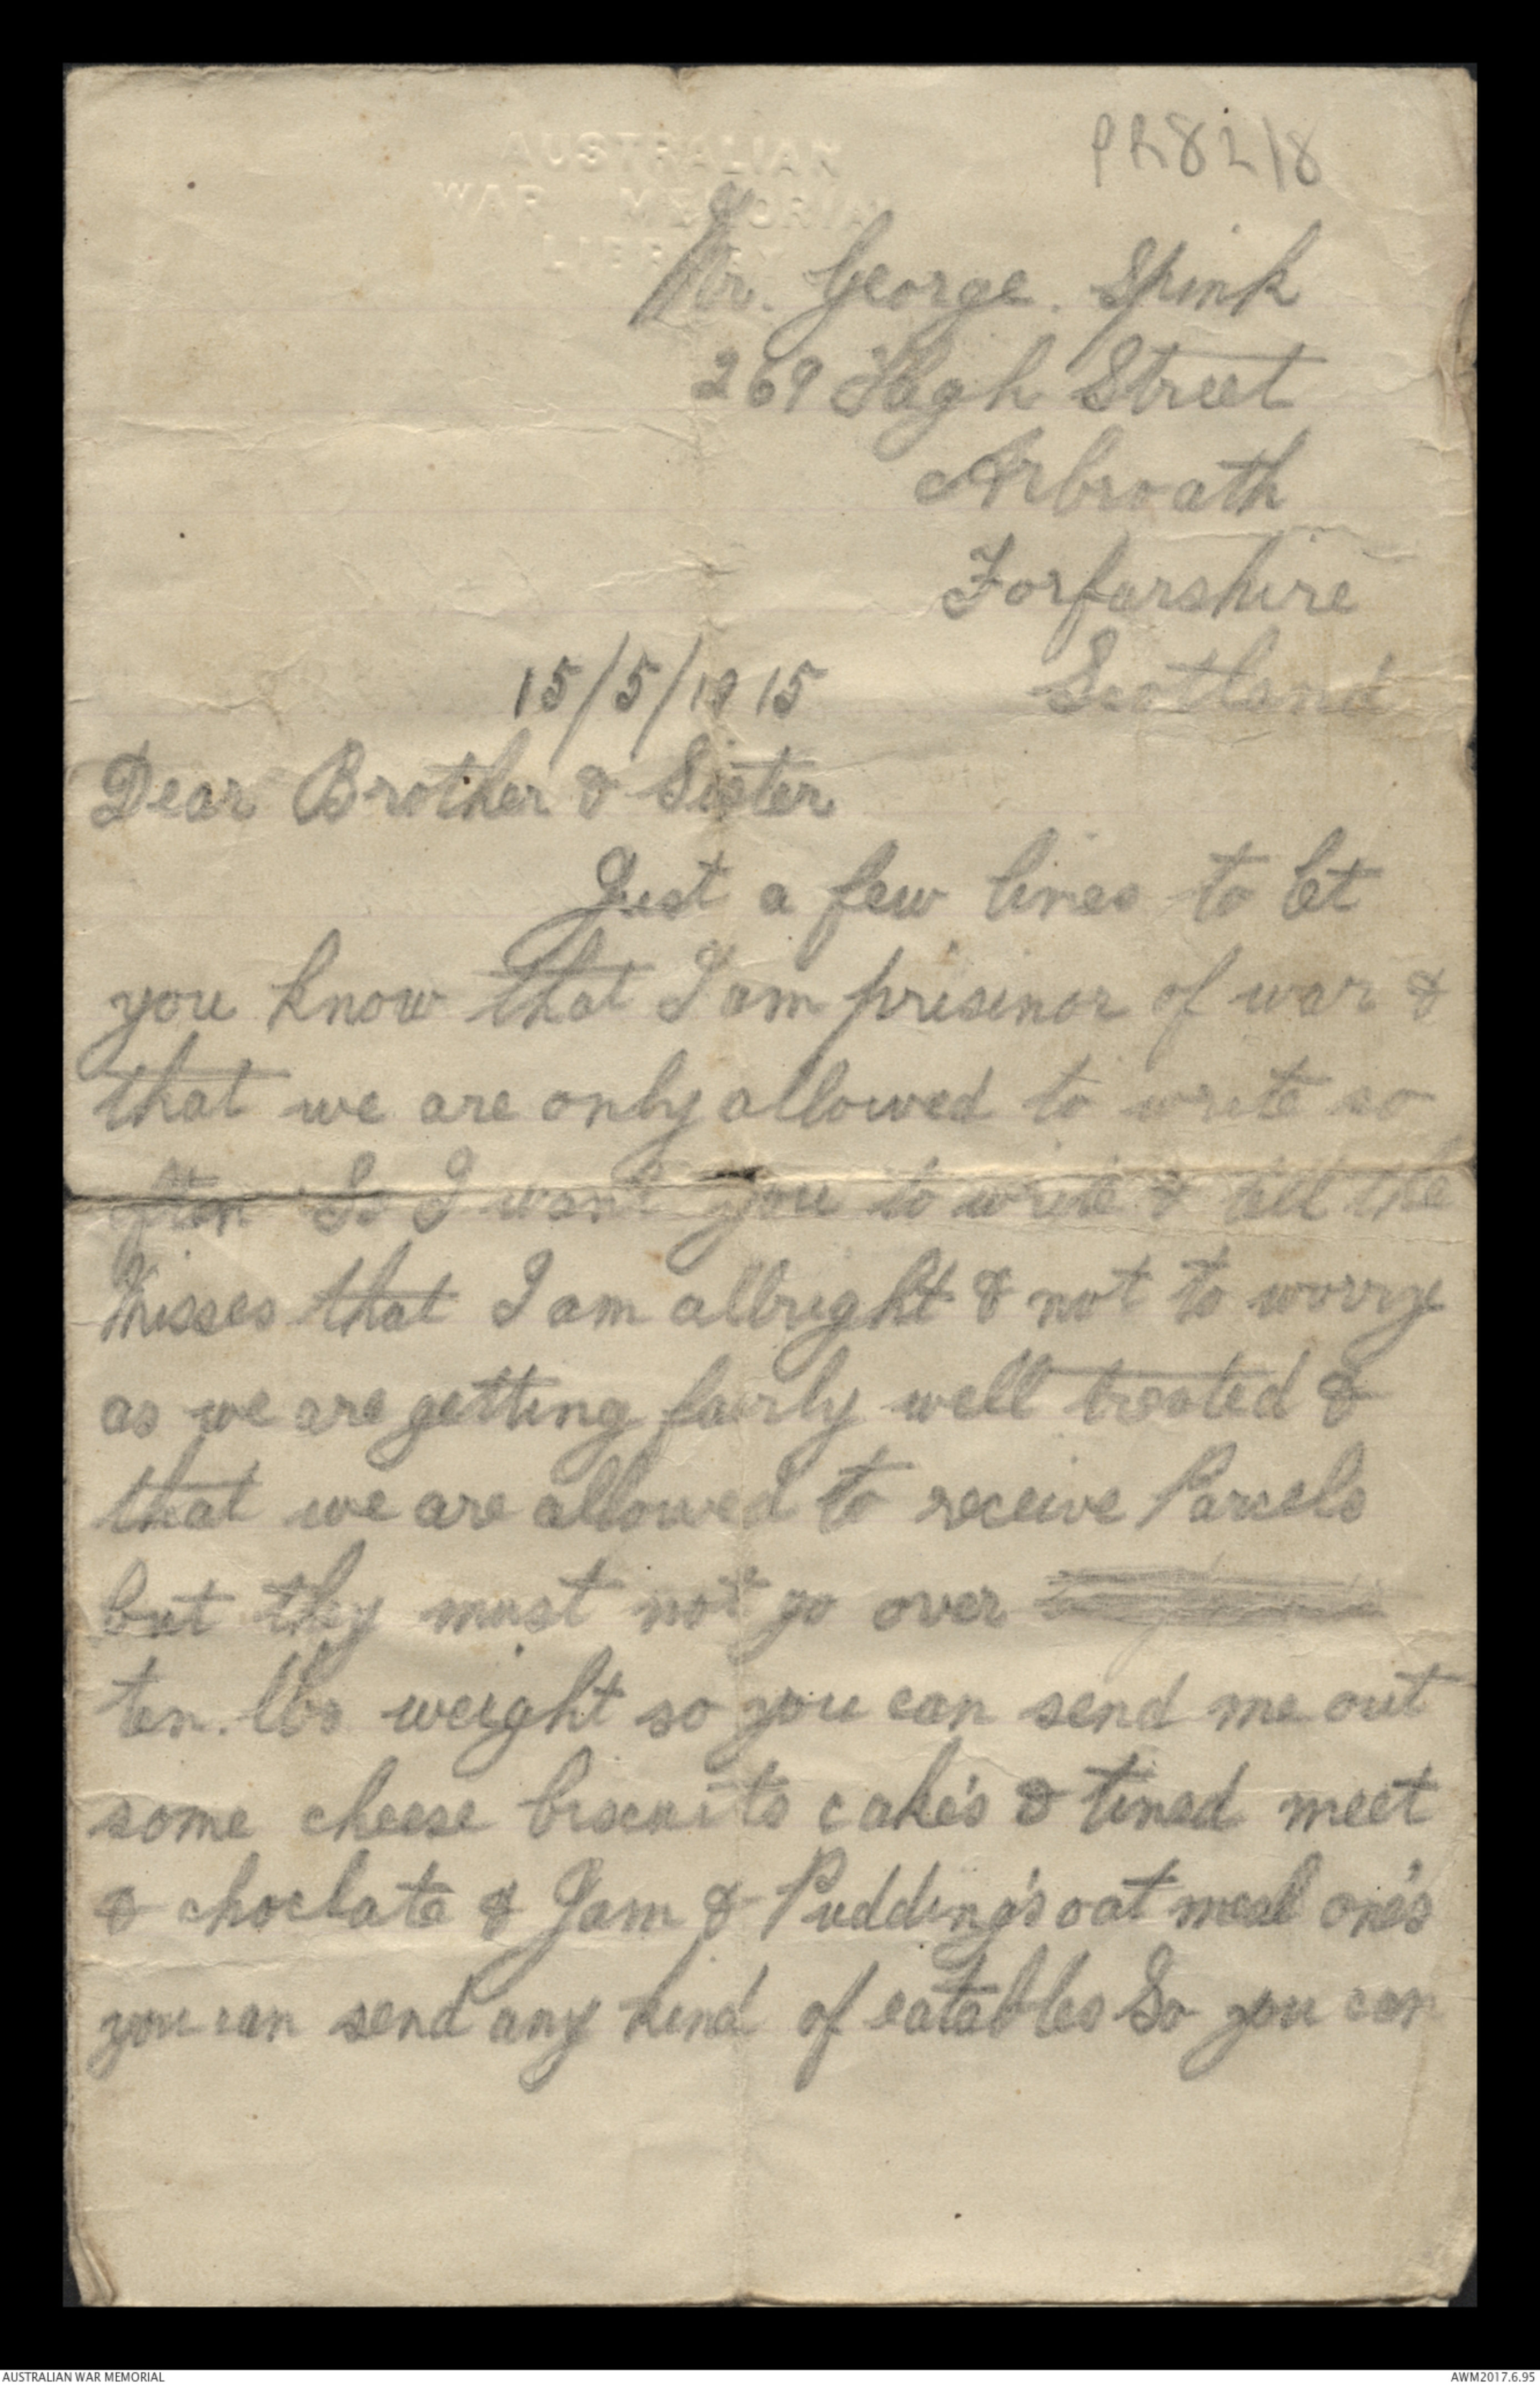 AUSTRALIAN
WAR MEMORIAL
LIBRARY
PR82/8
Mr. George. Spink
269 High Street
Arbroath
Forfarshire
15/5/1915 Scotland
Dear Brother & Sister
Just a few lines to let
you know that I am prisinor of war &
that we are only allowed to write so
often So I want you to write & tell the
Misses that I am allright & not to worry
as we are getting fairly well treated &
that we are allowed to receive Parcels
but they must not go over
ten. lbs weight so you can send me out
some cheese biscuits cake's & tined meet
& choclate & Jam & Pudding's oat meal one's
you can send any kind of eatables So you can
AUSTRALIAN WAR MEMORIAL
AWM2017.6.95